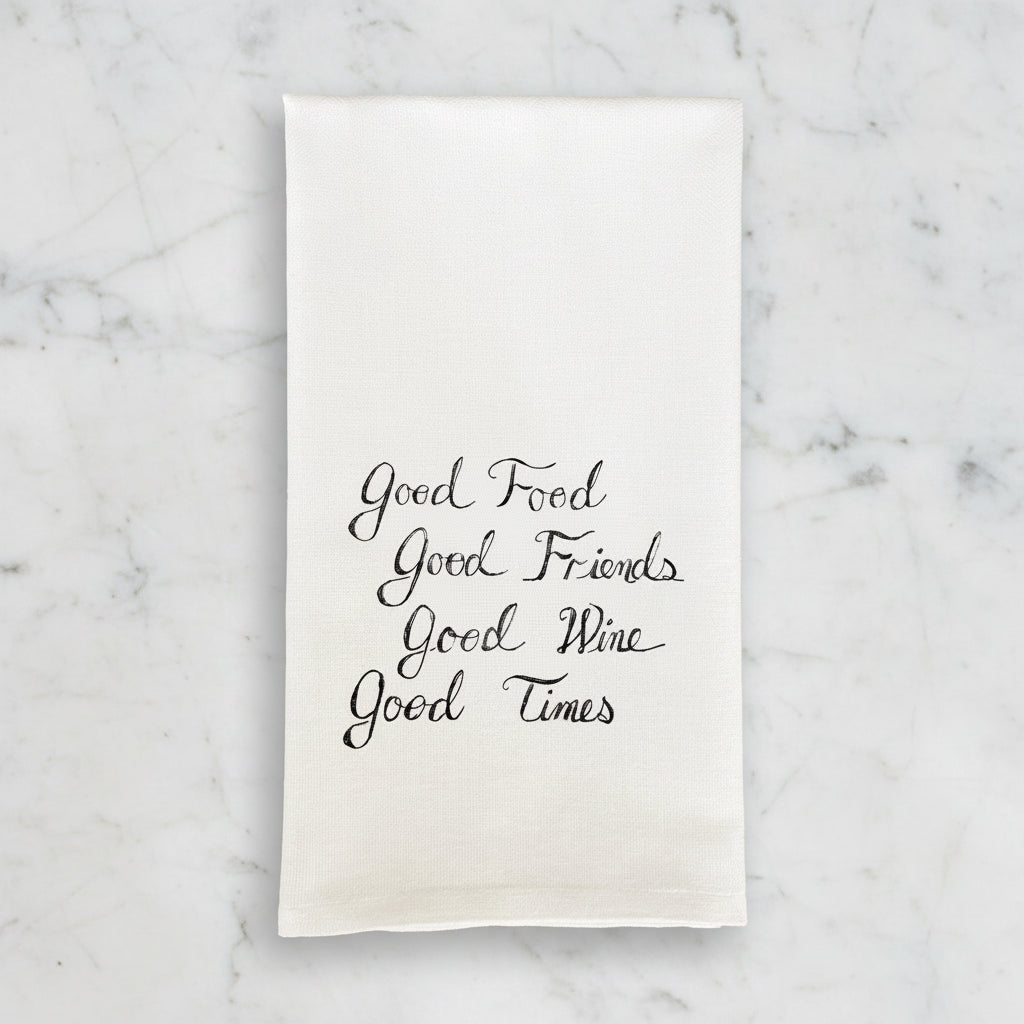 Good Food
Good Friends
Good Wine
Good Times